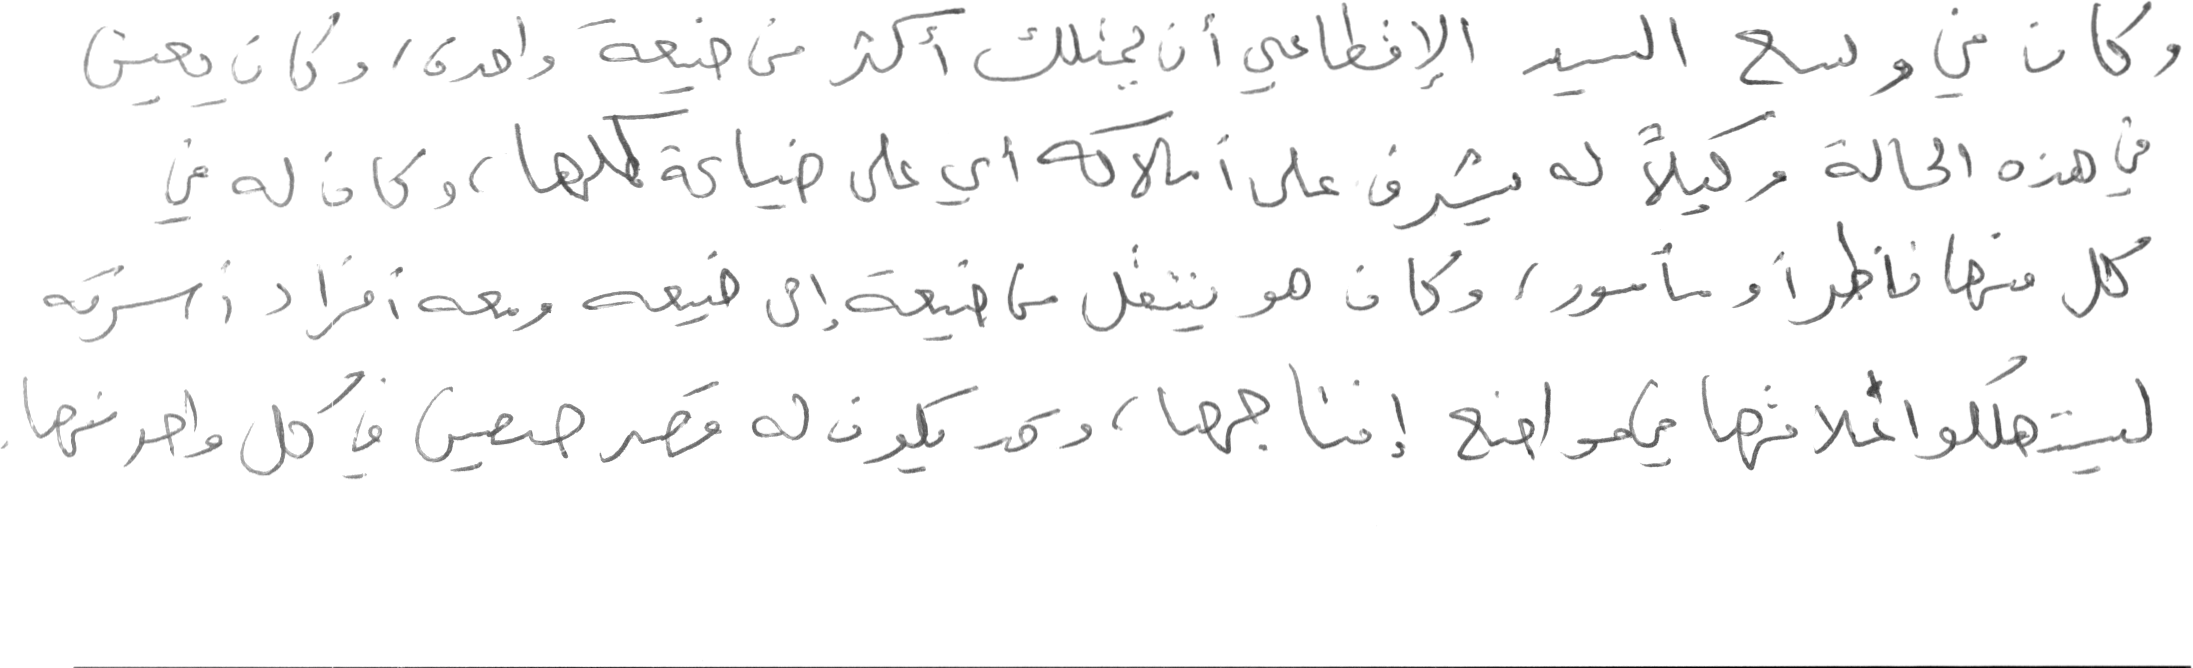 وكان في وسع السيد الإقطاعي أن يمتلك أكثر من ضيعة واحدة، وكان يعين
في هذه الحالة وكيلاً له يشرف على أملاكه أي على ضياعة كلها، وكان له في
كل منها ناظر أو مأمور، وكان هو ينتقل من ضيعة إلى ضيعه ومعه أفراد أسرته
ليستهلكوا غلاتها في مواضع إنتاجها، وقد يكون له قصر حصين في كل واحد منها.